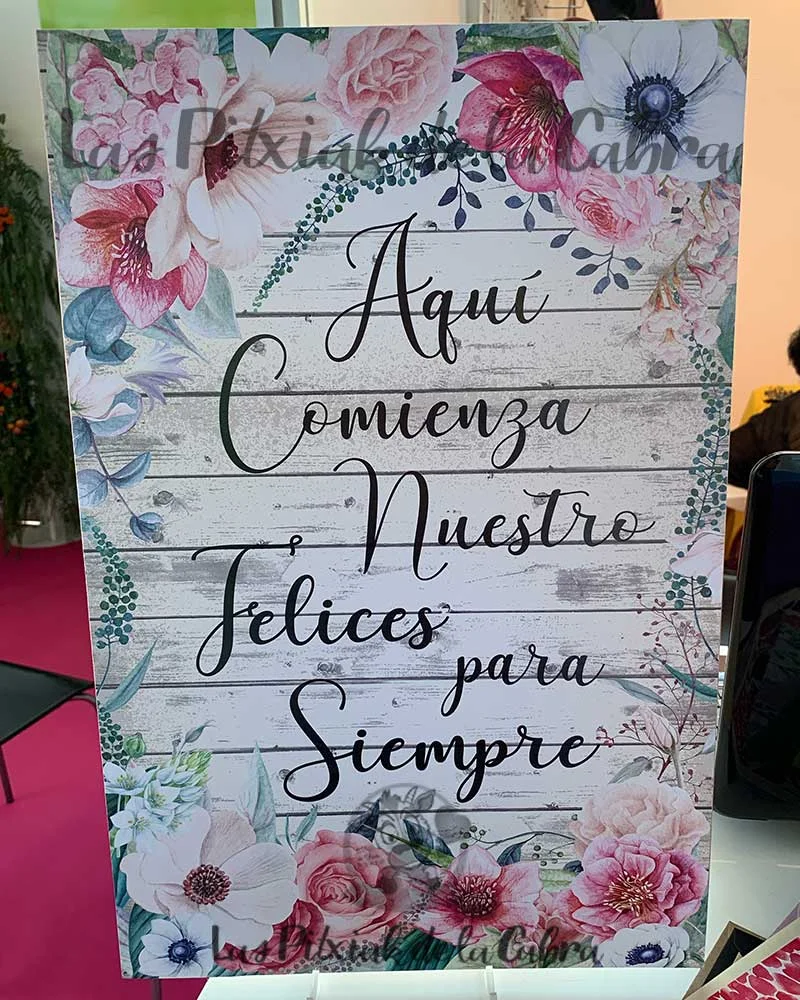 Las Pitxiak de la Cabra
Aquí
Comienza
Nuestro
Felices
para
Siempre
Las Pitxiak de la Cabra